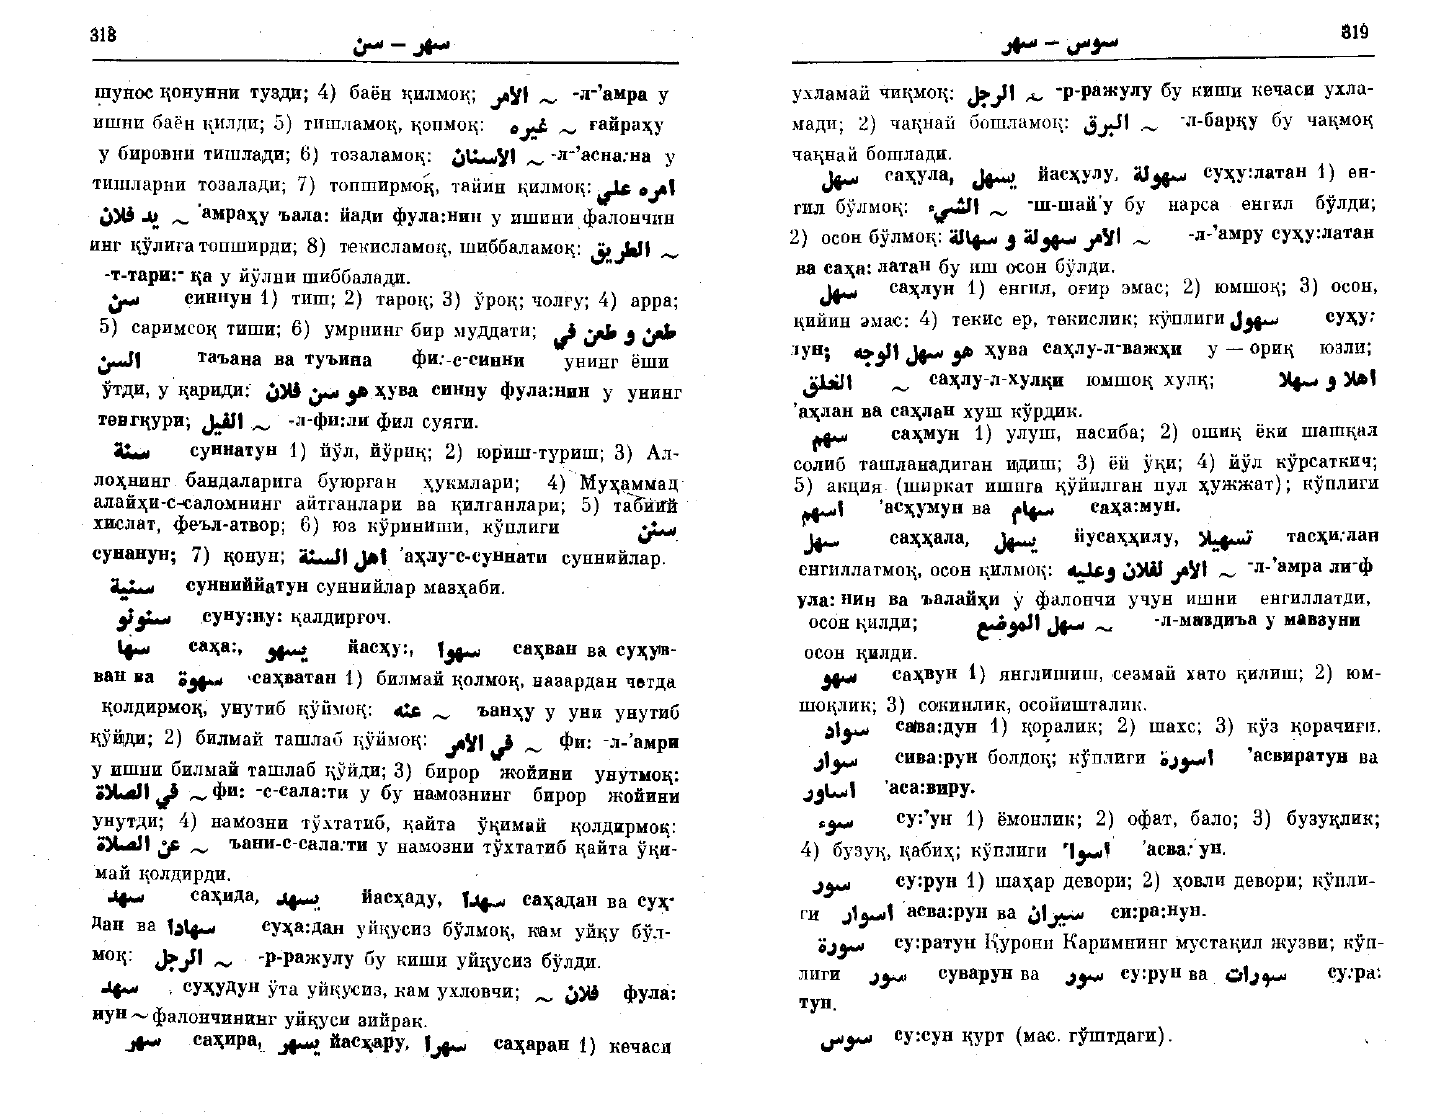 318
سهر — سن
шунос қонунни тузди; 4) баён қилмоқ; الأمر ~ -л-’амра у
ишни баён қилди; 5) тишламоқ, қопмоқ: غيره ~ ғайраҳу
у бировни тишлади; 6) тозаламоқ: الأسنان ~ -л-’асна:на у
тишларни тозалади; 7) топширмоқ, тайин қилмоқ: امره علي
يد فلان ~ ’амраҳу ъала: йади фула:нин у ишини фалончин
инг қўлига топширди; 8) текисламоқ, шиббаламоқ: الطريق ~
-т-тари:- қа у йўлни шиббалади.
سن синнун 1) тиш; 2) тароқ; 3) ўроқ; чолғу; 4) арра;
5) саримсоқ тиши; 6) умрнинг бир муддати; طعن و طعن في
السن таъана ва туъина фи:-с-синни унинг ёши
ўтди, у қариди: هو سن فلان ҳува синну фула:нин у унинг
тенгқури; الفيل ~ -л-фи:ли фил суяги.
سنة суннатун 1) йўл, йўриқ; 2) юриш-туриш; 3) Ал-
лоҳнинг бандаларига буюрган ҳукмлари; 4) Муҳаммад
алайҳи-с-саломнинг айтганлари ва қилганлари; 5) табиий
хислат, феъл-атвор; 6) юз кўриниши, кўплиги سنن
сунанун; 7) қонун; اهل السنة ’аҳлу-с-суннати суннийлар.
سنية сунниййатун суннийлар мазҳаби.
سنونو суну:ну: қалдирғоч.
سها саҳа:, يسهو йасҳу:, سهوا саҳван ва суҳув-
ван ва سهوة саҳватан 1) билмай қолмоқ, назардан четда
қолдирмоқ, унутиб қўймоқ: عنه ~ ъанҳу у уни унутиб
қўйди; 2) билмай ташлаб қўймоқ: في الأمر ~ фи: -л-’амри
у ишни билмай ташлаб қўйди; 3) бирор жойини унутмоқ:
في الصلاة ~ фи: -с-сала:ти у бу намознинг бирор жойини
унутди; 4) намозни тўхтатиб, қайта ўқимай қолдирмоқ:
عن الصلاة ~ ъани-с-сала:ти у намозни тўхтатиб қайта ўқи-
май қолдирди.
سهد саҳида, يسهد йасҳаду, سهدا саҳадан ва суҳ-
дан ва سهادا суҳа:дан уйқусиз бўлмоқ, кам уйқу бўл-
моқ: الرجل ~ -р-ражулу бу киши уйқусиз бўлди.
سهد суҳудун ўта уйқусиз, кам ухловчи; فلان ~ фула:
нун ~ фалончининг уйқуси зийрак.
سهر саҳира, يسهر йасҳару, سهرا саҳаран 1) кечаси
319
سوس — سهر
ухламай чиқмоқ: الرجل ~ -р-ражулу бу киши кечаси ухла-
мади; 2) чақнай бошламоқ: البرق ~ -л-барқу бу чақмоқ
чақнай бошлади.
سهل саҳула, يسهل йасҳулу, سهولة суҳу:латан 1) ен-
гил бўлмоқ: الشيء ~ -ш-шай’у бу нарса енгил бўлди;
2) осон бўлмоқ: الأمر سهولة و سهالة ~ -л-’амру суҳу:латан
ва саҳа: латан бу иш осон бўлди.
سهل саҳлун 1) енгил, оғир эмас; 2) юмшоқ; 3) осон,
қийин эмас: 4) текис ер, текислик; кўплиги سهول суҳу:
лун; هو سهل الوجه ҳува саҳлу-л-важҳи у — ориқ юзли;
الخلق ~ саҳлу-л-хулқи юмшоқ хулқ; اهلا و سهلا
’аҳлан ва саҳлан хуш кўрдик.
سهم саҳмун 1) улуш, насиба; 2) ошиқ ёки шашқал
солиб ташланадиган идиш; 3) ёй ўқи; 4) йўл кўрсаткич;
5) акция (ширкат ишига қўйилган пул ҳужжат); кўплиги
اسهم ’асҳумун ва سهام саҳа:мун.
سهل саҳҳала, يسهل йусаҳҳилу, تسهيلا тасҳи:лан
енгиллатмоқ, осон қилмоқ: الأمر لفلان وعليه ~ -л-’амра ли-ф
ула: нин ва ъалайҳи у фалончи учун ишни енгиллатди,
осон қилди; سهل الموضع ~ -л-мавдиъа у мавзуни
осон қилди.
سهو саҳвун 1) янглишиш, сезмай хато қилиш; 2) юм-
шоқлик; 3) сокинлик, осойишталик.
سواد сава:дун 1) қоралик; 2) шахс; 3) кўз қорачиғи.
سوار сива:рун болдоқ; кўплиги اسورة ’асвиратун ва
اساور ’аса:виру.
سوء су:’ун 1) ёмонлик; 2) офат, бало; 3) бузуқлик;
4) бузуқ, қабиҳ; кўплиги اسواء ’асва:’ун.
سور су:рун 1) шаҳар девори; 2) ҳовли девори; кўпли-
ги اسوار асва:рун ва سيران си:ра:нун.
سورة су:ратун Қурони Каримнинг мустақил жузви; кўп-
лиги سور суварун ва سور су:рун ва سورات су:ра:
тун.
سوس су:сун қурт (мас. гўштдаги).